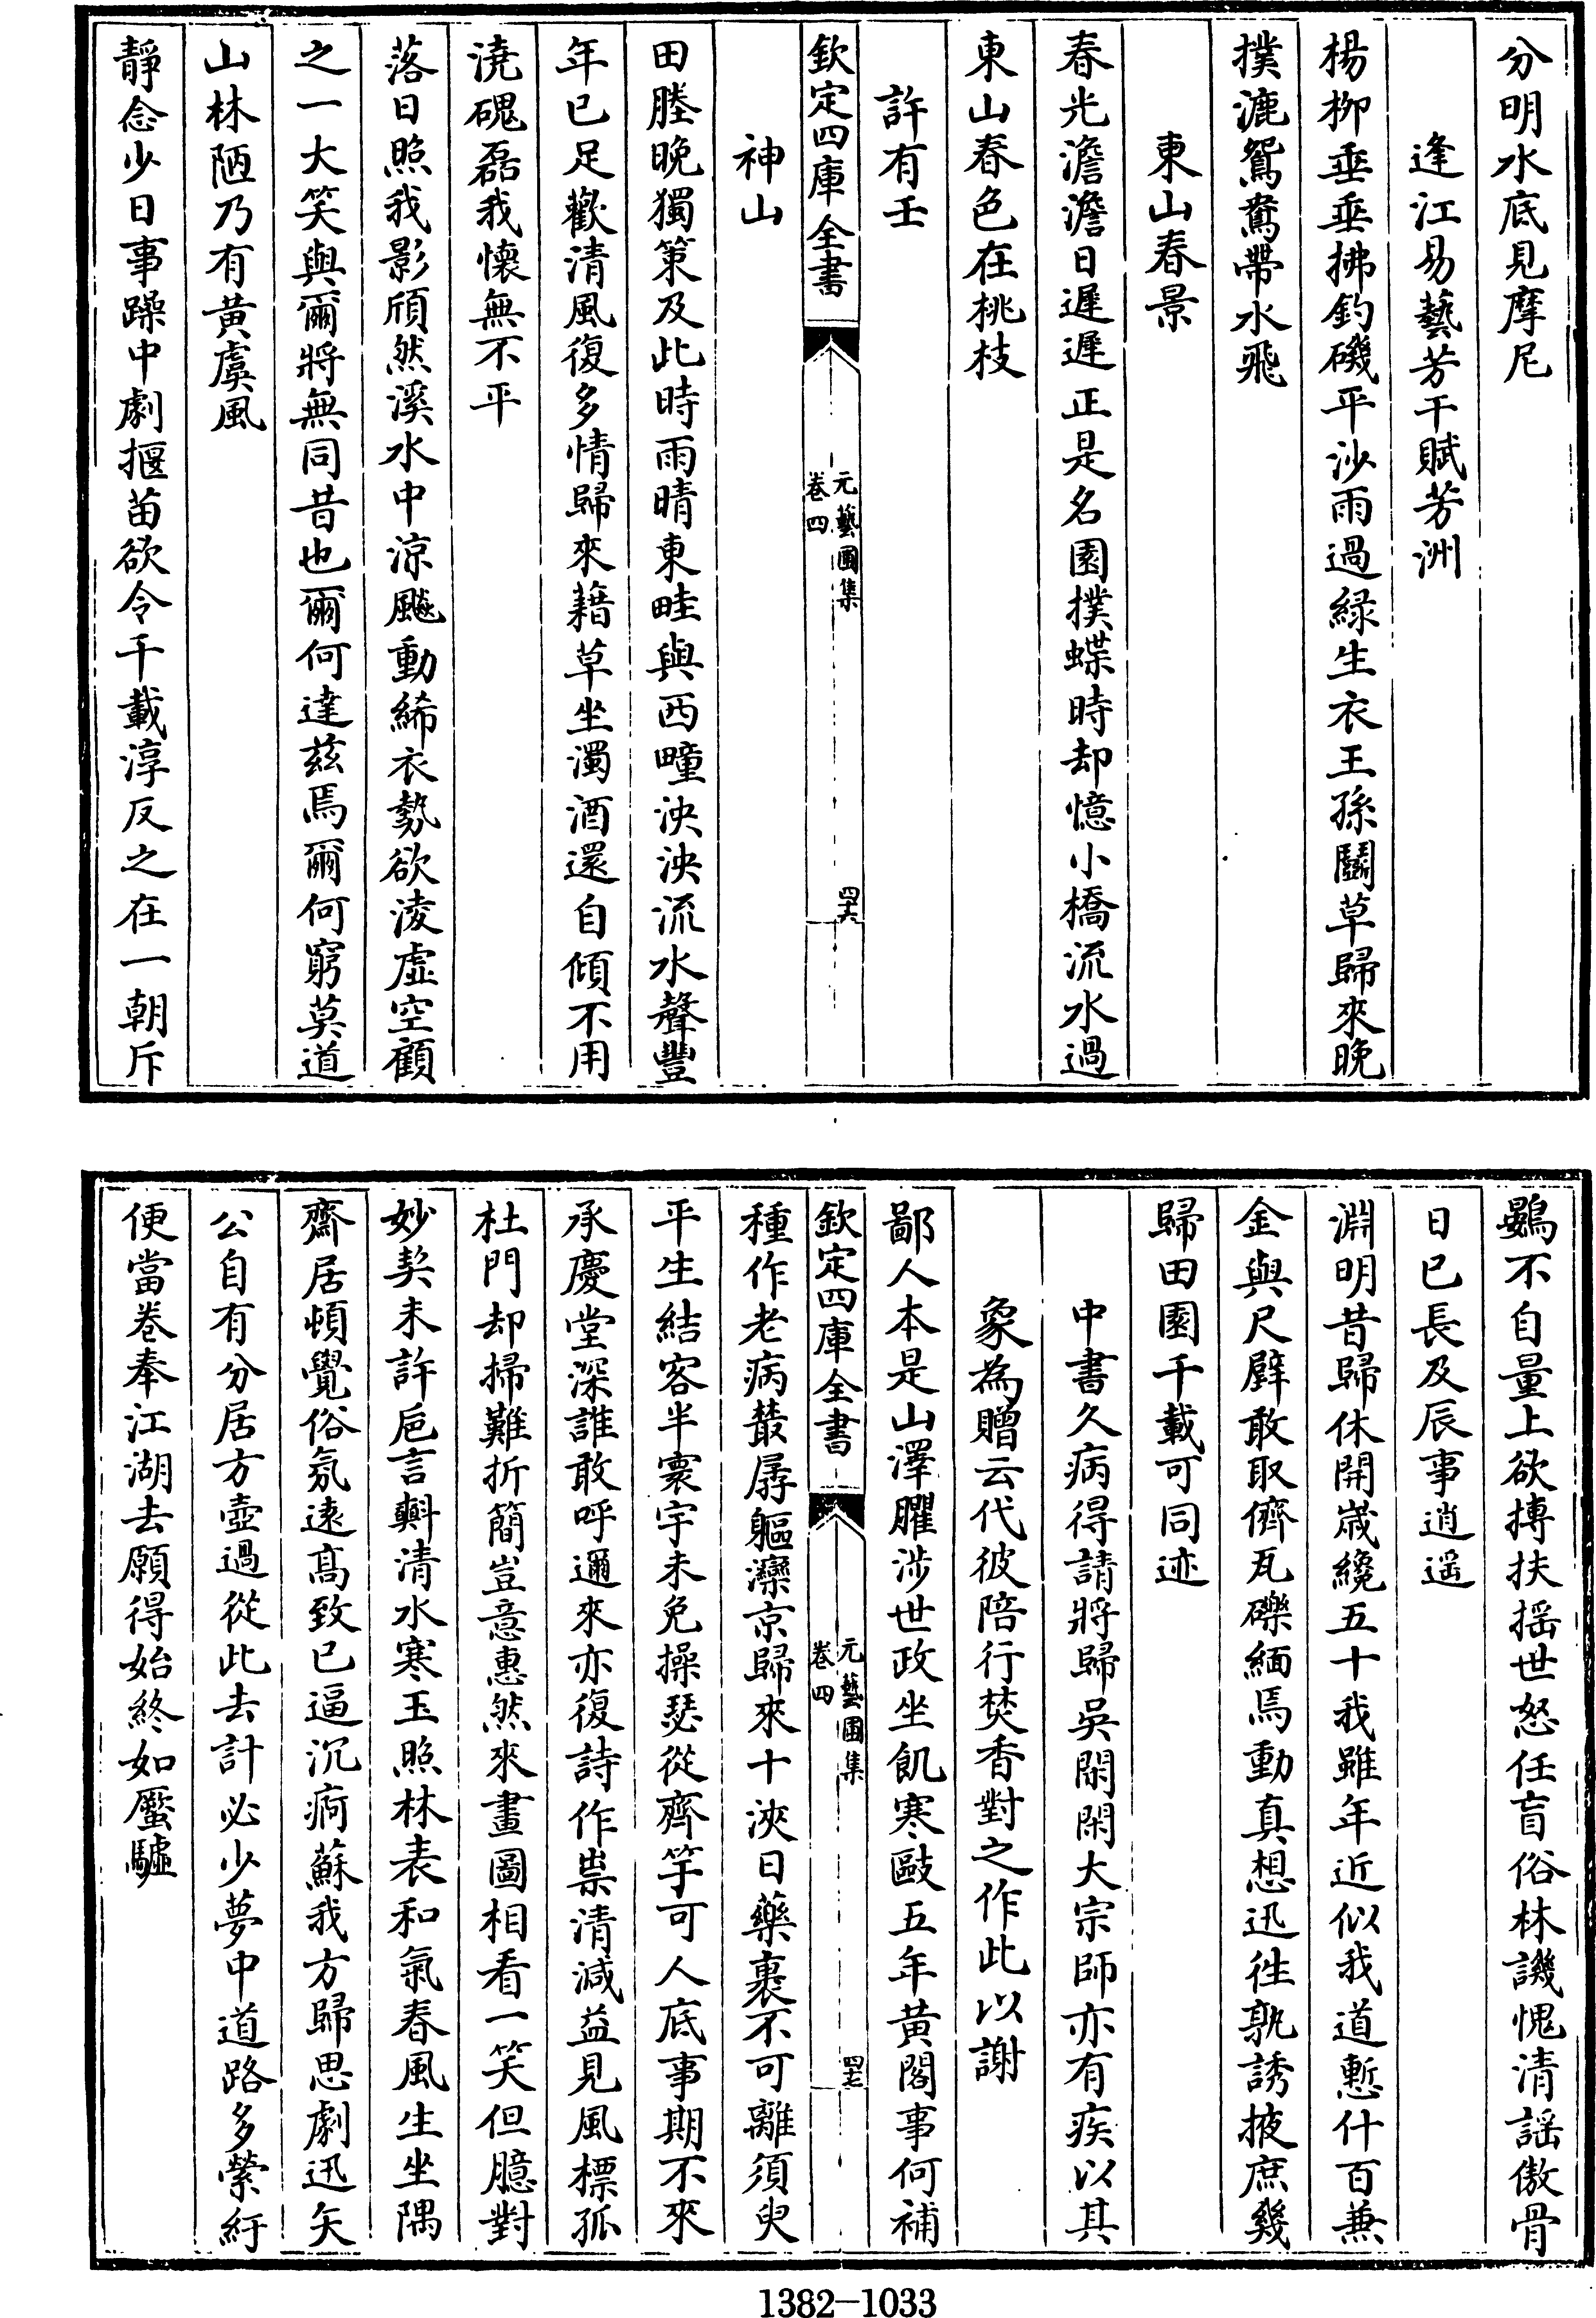 分明水底見摩尼
逢江易藝芳干賦芳洲
楊柳垂垂拂釣磯平沙雨過緑生衣王孫鬭草歸來晚
撲漉鴛鴦帶水飛
東山春景
春光澹澹日遲遲正是名園撲蝶時却憶小橋流水過
東山春色在桃枝
許有壬
欽定四庫全書
元藝圃集
卷四
四十六
神山
田塍晚獨策及此時雨晴東畦與西疃泱泱流水聲豐
年已足歡清風復多情歸來藉草坐濁酒還自傾不用
澆磈磊我懷無不平
落日照我影頎然溪水中涼飈動絺衣勢欲淩虛空顧
之一大笑與爾將無同昔也爾何達茲焉爾何窮莫道
山林陋乃有黃虞風
靜念少日事躁中劇揠苗欲令千載淳反之在一朝斥
鷃不自量上欲摶扶揺世怒任盲俗林譏愧清謡傲骨
日已長及辰事逍遥
淵明昔歸休開歲纔五十我雖年近似我道慙什百兼
金與尺璧敢取儕瓦礫緬焉動真想迅徃孰誘掖庶幾
歸田園千載可同迹
中書久病得請將歸吳閑閑大宗師亦有疾以其
象為贈云代彼陪行焚香對之作此以謝
鄙人本是山澤臞涉世政坐飢寒敺五年黃閣事何補
欽定四庫全書
元藝圃集
卷四
四十七
種作老病叢孱軀灤京歸來十浹日藥裹不可離須臾
平生結客半寰宇未免操瑟從齊竽可人底事期不來
承慶堂深誰敢呼邇來亦復詩作祟清減益見風標孤
杜門却掃難折簡豈意惠然來畫圖相看一笑但臆對
妙契未許巵言㪺清水寒玉照林表和氣春風生坐隅
齋居頓覺俗氛逺高致已逼沉痾蘇我方歸思劇迅矢
公自有分居方壺過從此去計必少夢中道路多縈紆
便當卷奉江湖去願得始終如蛩驉
1382-1033